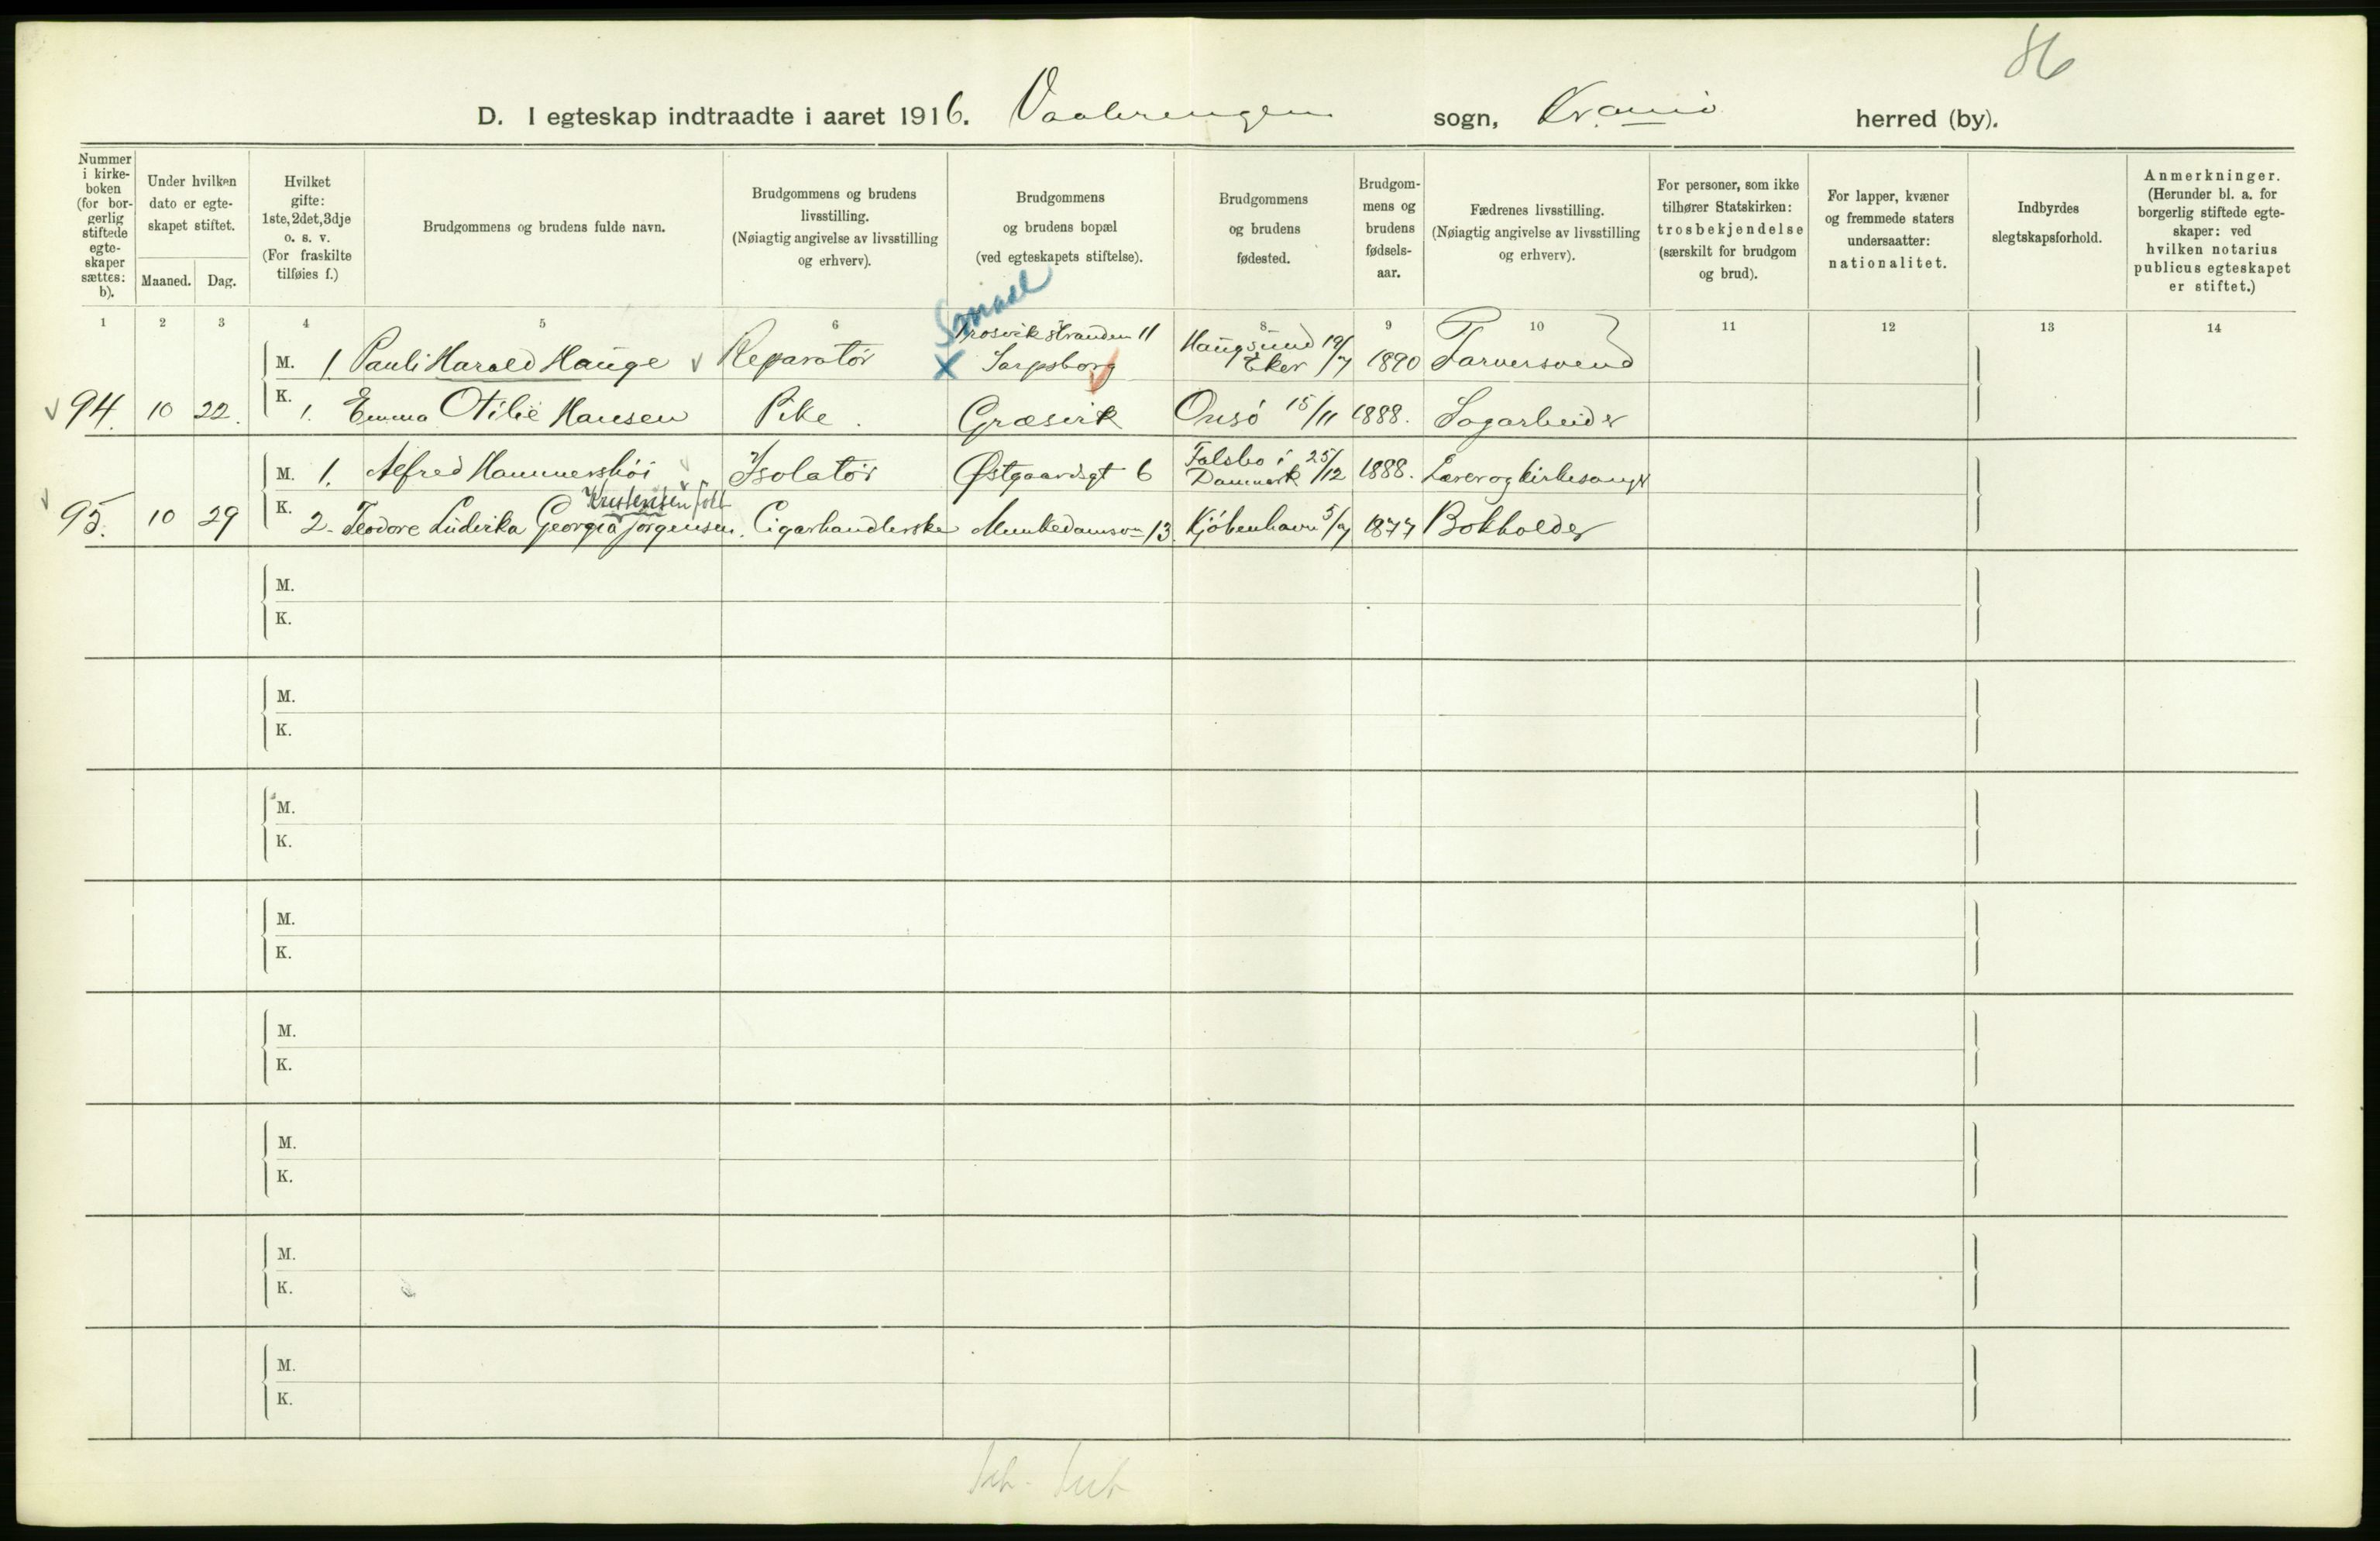 86
D. I egteskap indtraadte i aaret 1916. Vaalerengen sogn, Kr.ania herred (by).
Nummer i kirke- boken (for bor- gerlig stiftede egte- skaper sættes: b).
Under hvilken dato er egte- skapet stiftet.
Maaned. Dag.
Hvilket gifte: 1ste, 2det, 3dje o. s. v. (For fraskilte tilføies f.)
Brudgommens og brudens fulde navn.
Brudgommens og brudens livsstilling. (Nøiagtig angivelse av livsstilling og erhverv).
Brudgommens og brudens bopæl (ved egteskapets stiftelse).
Brudgommens og brudens fødested.
Brudgom- mens og brudens fødsels- aar.
Fædrenes livsstilling. (Nøiagtig angivelse av livsstilling og erhverv).
For personer, som ikke tilhører Statskirken: trosbekjendelse (særskilt for brudgom og brud).
For lapper, kvæner og fremmede staters undersaatter: nationalitet.
Indbyrdes slegtskapsforhold.
Anmerkninger. (Herunder bl. a. for borgerlig stiftede egte- skaper: ved hvilken notarius publicus egteskapet er stiftet.)
1 2 3 4 5 6 8 9 10 11 12 13 14
Trosvikstranden 11
M. 1. Pauli Harald Hauge Reparatör X Sarpsborg Haugsund Eker 19/7 1890 Farversvend
94. 10 22. K. 1. Emma Otilie Hansen Pike. Græsvik Onsö 15/11 1888. Sagarbeider
M. 1. Alfred Hammershöi Isolatör Østgaardsgt 6 Falsbo i Danmark 25/12 1888. Lærer og kirkesanger
Kristensen født
95. 10 29 K. 2. Teodore Ludvika Georgia Jörgensen. Cigarhandlerske Munkedamsvn 13. Kjöbenhavn 5/7 1877 Bokholder
M.
K.
M.
K.
M.
K.
M.
K.
M.
K.
M.
K.
M.
K.
M.
K.